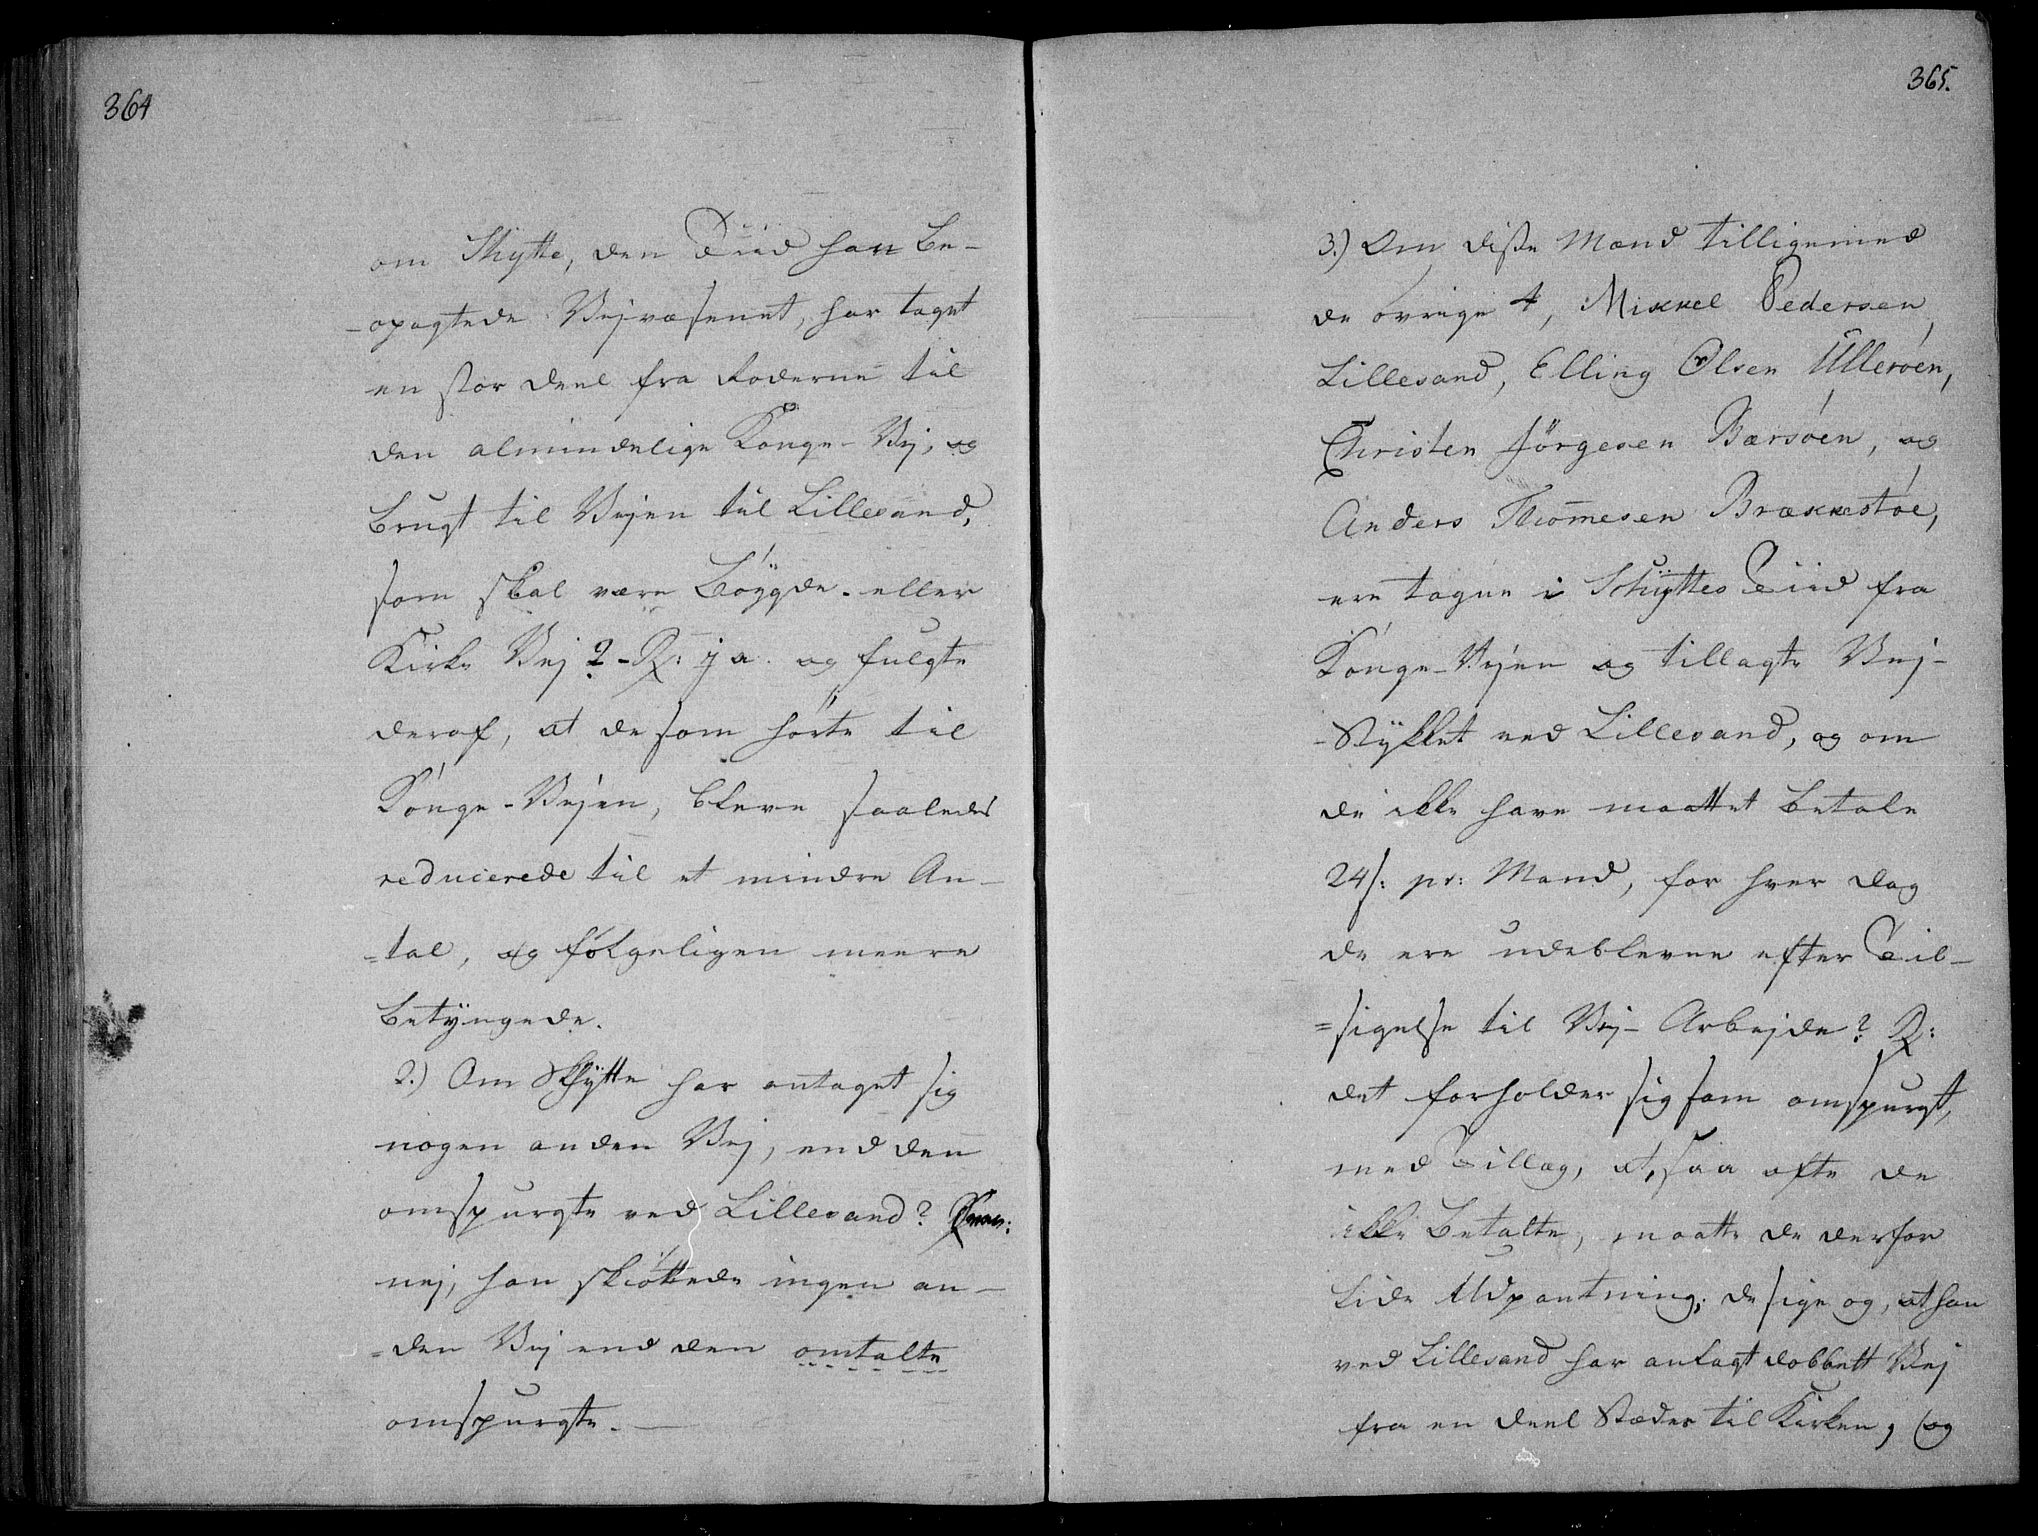 364
om Skytte, den Tiid han be-
-opagtede Vejvæsenet, har taget
en stor Deel fra Roderne til
den almindelige Konge-Vej, og
brugt til Vejen til Lillesand,
som skal være Bøygde- eller
Kirke Vej? - R: ja. og fulgte
deraf, at de som hørte til
Konge-Vejen, bleve saaledes
reducerede til et mindre An-
=tal, og følgeligen meere
betyngede.
2.) Om Skytte har antaget sig
nogen anden Vej, end den
omspurgte ved Lillesand?
nej, han skiøttede ingen an-
=den Vej end den omtalte
omspurgte.
365.
3.) Om disse Mænd tilligemed
de øvrige 4, Mikkel Pedersen,
Lillesand, Elling Olsen Ulleröen,
Christen Jörgesen Bærsöen, og
Anders Thomesen Brækkestöe,
ere tagne i Schyttes Tiid fra
Konge-Vejen og tillagte Vej-
-Stykket ved Lillesand, og om
de ikke have maattet betale
24 s: pr: Mand, for hver Dag
de ere udeblevne efter Til-
=sigelse til Vej-Arbejde? R:
det forholder sig som omspurgt,
med Tillæg, at, saa ofte de
ikke betalte, maatte de derfor
lide Udpantning; de sige og, at han
ved Lillesand har anlagt dobbelt Vej
fra en deel Stæder til Kirken, (og